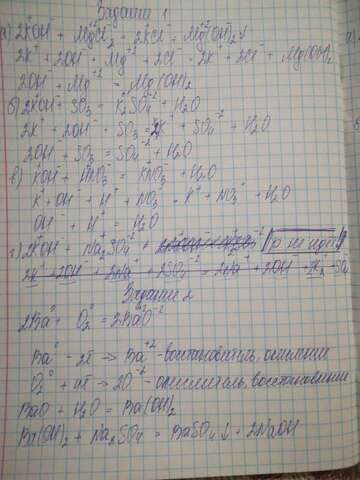 Задание 1
а) 2KOH + MgCl₂ = 2KCl + Mg(OH)₂↓
2K⁺ + 2OH⁻ + Mg⁺² + 2Cl⁻ = 2K⁺ + 2Cl⁻ + Mg(OH)₂
2OH⁻ + Mg⁺² = Mg(OH)₂
б) 2KOH + SO₃ = K₂SO₄⁻² + H₂O
2K⁺ + 2OH⁻ + SO₃ = 2K⁺ + SO₄⁻² + H₂O
2OH⁻ + SO₃ = SO₄⁻² + H₂O
в) KOH + HNO₃ = KNO₃ + H₂O
K⁺ + OH⁻ + H⁺ + NO₃⁻ = K⁺ + NO₃⁻ + H₂O
OH⁻ + H⁺ = H₂O
г) 2KOH + Na₂SO₄⁻² р не идёт
2K⁺ + 2OH⁻ + 2Na⁺ + 2SO₄⁻² = 2Na⁺ + 2OH⁻ +
Задание 2
2Ba⁰ + O₂⁰ = 2Ba⁺²O⁻²
Ba⁰ - 2e → Ba⁺² - восстановитель, окисление
O₂⁰ + 4e → 2O⁻² - окислитель, восстановление
BaO + H₂O = Ba(OH)₂
Ba(OH)₂ + Na₂SO₄ = BaSO₄↓ + 2NaOH